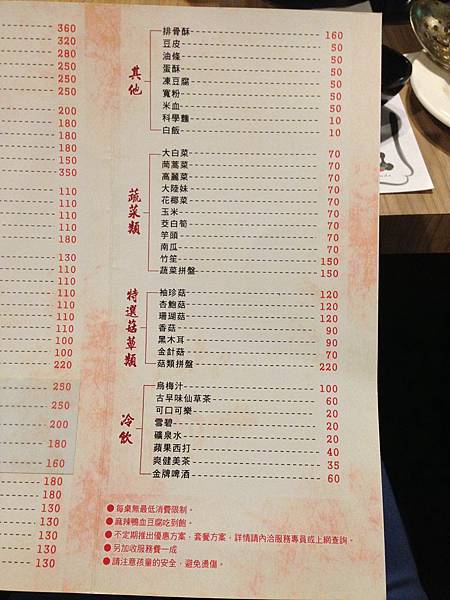 360
320
280
250
250
250
200
180
180
150
350
110
110
110
180
130
110
110
110
110
100
100
220
250
250
200
180
160
180
180
130
130
130
130
130
其他
排骨酥 160
豆皮 50
油條 50
蛋酥 50
凍豆腐 50
寬粉 50
米血 50
科學麵 10
白飯 10
蔬菜類
大白菜 70
茼蒿菜 70
高麗菜 70
大陸妹 70
花椰菜 70
玉米 70
茭白筍 70
芋頭 70
南瓜 70
竹笙 150
蔬菜拼盤 150
特選菇蕈類
袖珍菇 120
杏鮑菇 120
珊瑚菇 120
香菇 90
黑木耳 90
金針菇 70
菇類拼盤 220
冷飲
烏梅汁 100
古早味仙草茶 60
可口可樂 20
雪碧 20
礦泉水 20
蘋果西打 40
爽健美茶 35
金牌啤酒 60
●每桌無最低消費限制。
●麻辣鴨血豆腐吃到飽。
●不定期推出優惠方案，套餐方案，詳情請內洽服務專員或上網查詢。
●另加收服務費一成
●請注意孩童的安全，避免燙傷。